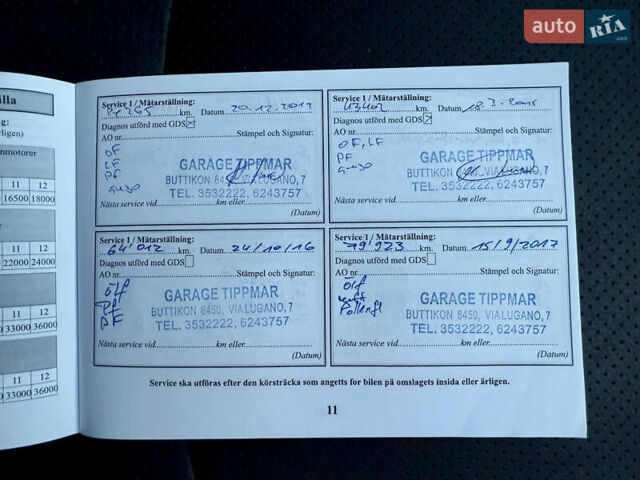 auto RIA .com
Service 1 / Mätarställning:
km. Datum 20.12.2014
Diagnos utförd med GDS
AO nr. Stämpel och Signatur:
ÖF
LF
PF
GARAGE TIPPMAR
BUTTIKON 8450, VIALUGANO, 7
TEL. 3532222, 6243757
Nästa service vid km eller
(Datum)
Service 1 / Mätarställning:
43402 km. Datum
Diagnos utförd med GDS
AO nr. Stämpel och Signatur:
ÖF, LF
PF
GARAGE TIPPMAR
BUTTIKON 8450, VIALUGANO, 7
TEL. 3532222, 6243757
Nästa service vid km eller
(Datum)
Service 1 / Mätarställning:
64'012 km. Datum 24/10/16
Diagnos utförd med GDS
AO nr. Stämpel och Signatur:
ölf
PF
GARAGE TIPPMAR
BUTTIKON 8450, VIALUGANO, 7
TEL. 3532222, 6243757
Nästa service vid km eller
(Datum)
Service 1 / Mätarställning:
79'923 km. Datum 15/9/2017
Diagnos utförd med GDS
AO nr. Stämpel och Signatur:
ölf
luft
Pollenfl
GARAGE TIPPMAR
BUTTIKON 8450, VIALUGANO, 7
TEL. 3532222, 6243757
Nästa service vid km eller
(Datum)
Service ska utföras efter den körsträcka som angetts för bilen på omslagets insida eller årligen.
11
11 12
16500 18000
22000 24000
11 12
33000 36000
11 12
33000 36000